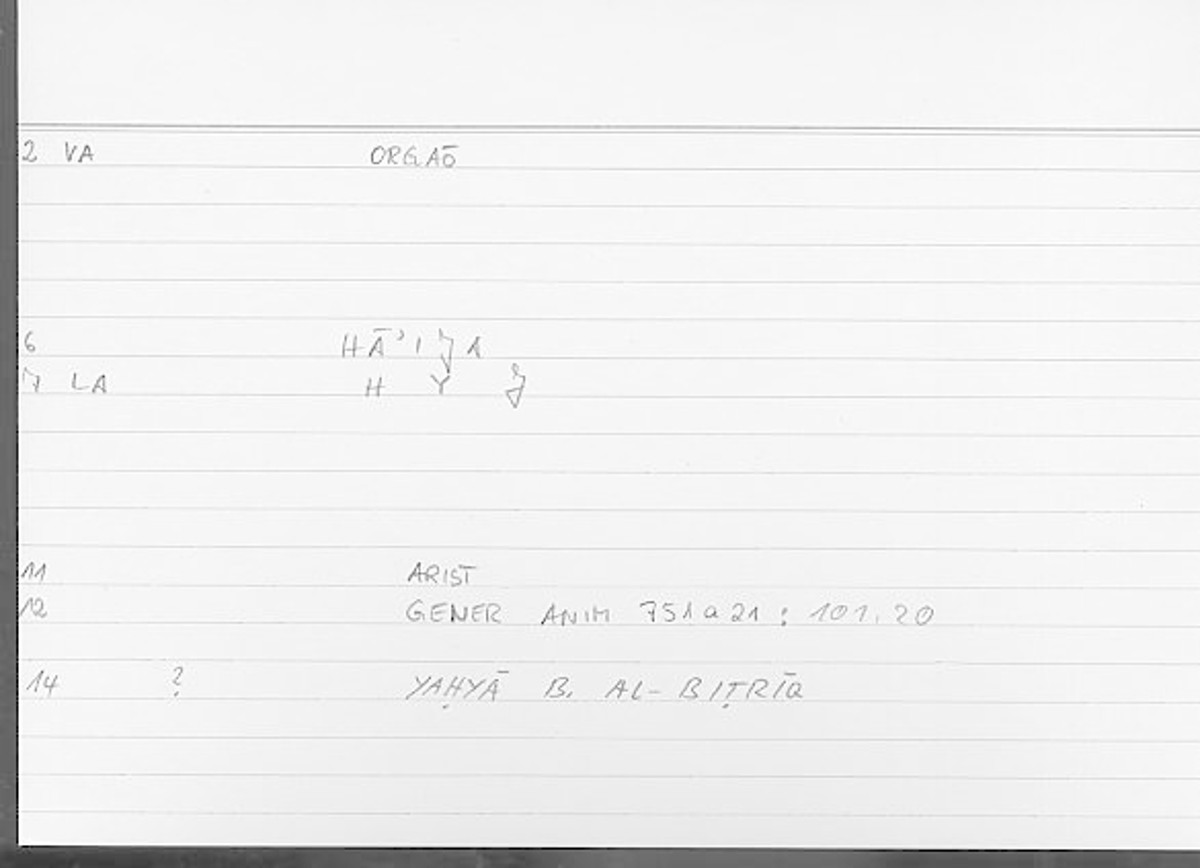 2 VA ORGAŌ
6 HĀʾIǰA
7 LA H Y ǰ
11 ARIST
12 GENER ANIM 751a21 : 101.20
14 ? YAḤYĀ B. AL-BIṬRĪQ